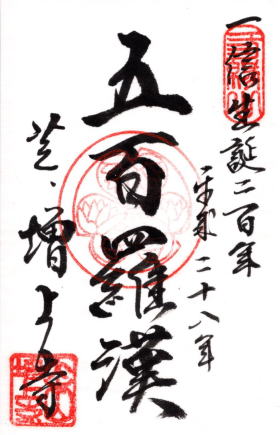 一信生誕二百年
平成二十八年
五百羅漢
芝、増上寺